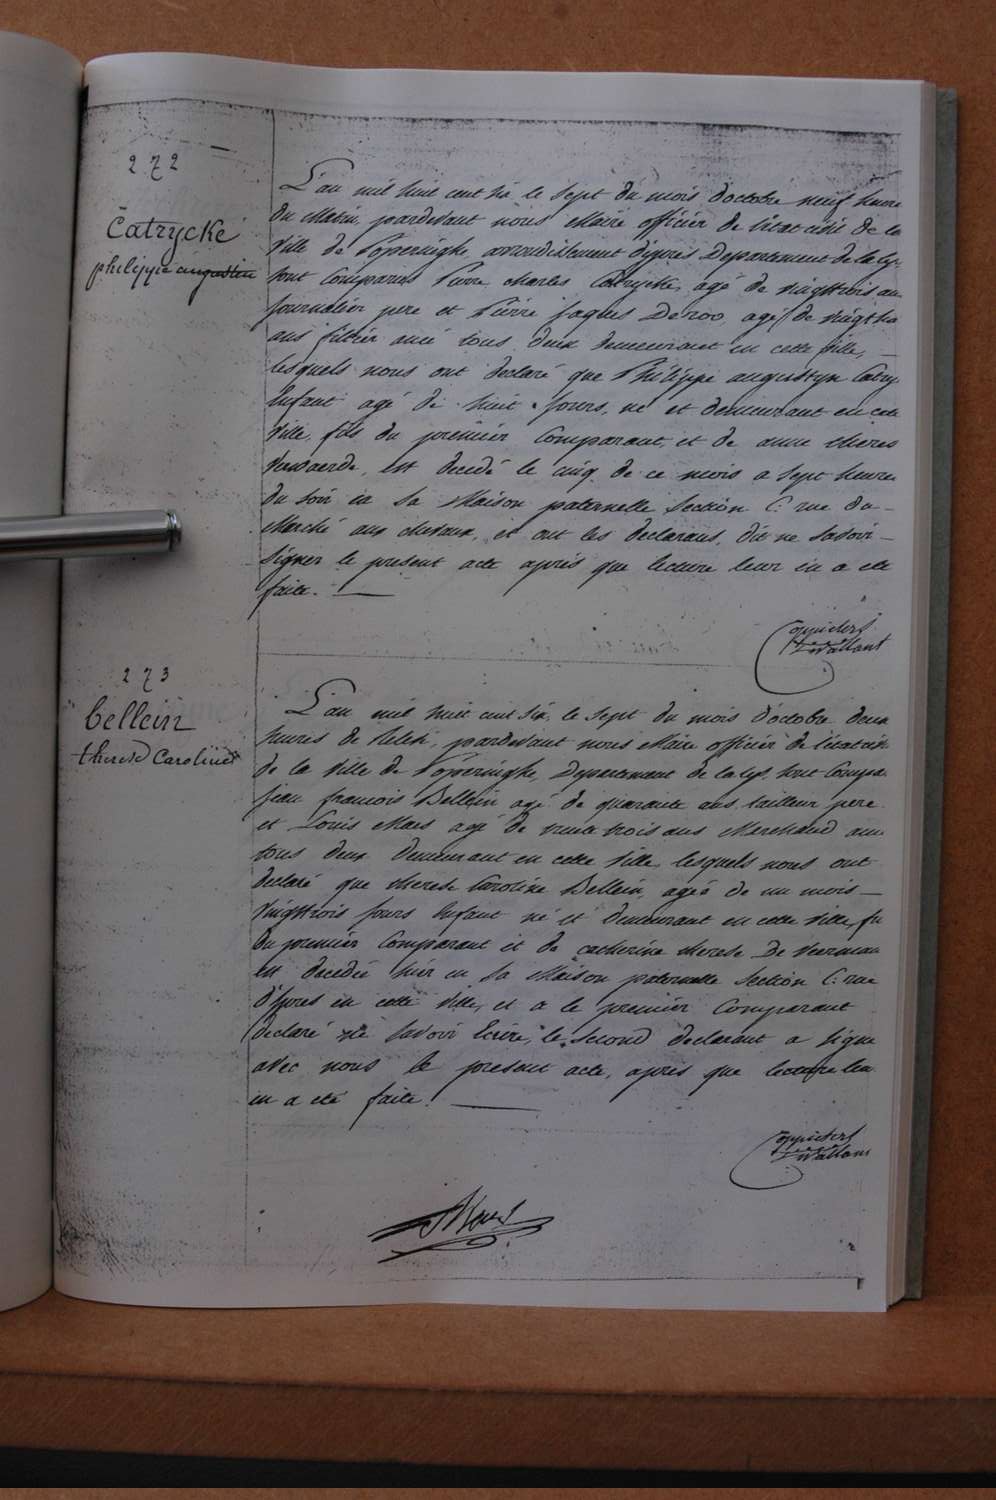 272
Catrycke
philippe augustin
L'an mil huit cent six le sept du mois d'octobre neuf heures
du Matin, pardevant nous Maire officier de l'état civil de la
Ville de Poperinghe, arrondissement d'ypres Departement de la Lys
sont Comparus Pierre Charles Catrycke, agé de vingttrois ans
journalier pere et Pierre Jaques Deroo, agé de vingt
ans ami tous deux demeurant en cette Ville,
lesquels nous ont declaré que Philippe augustyn Catry
Enfant agé de huit jours, né et demeurant en cette
Ville, fils du premier Comparant, et de anne therese
est decedé le cinq de ce mois a sept heures
du soir en sa Maison paternelle Section C: rue du
Marché aux chevaux, et ont les declarans, dit ne savoir
signer le present acte après que lecture leur en a eté
faite.
273
bellein
therese Caroline
L'an mil huit cent six, le sept du mois d'octobre deux
heures de relevé, pardevant nous Maire officier de l'état civil
de la Ville de Poperinghe, Departement de la Lys, sont Compa
jean francois Bellein agé de quarante ans, tailleur pere
et Louis Maes agé de trente trois ans Marchand ami
tous deux demeurant en cette Ville lesquels nous ont
declaré que therese Caroline Bellein, ageé de un mois
vingttrois jours Enfant né et demeurant en cette Ville, fil
du premier Comparant et de catherine therese De
est decedée hier en sa Maison paternelle Section C: rue
d'ypres en cette Ville, et a le premier Comparant
declaré ne savoir Ecrire, le second declarant a signé
avec nous le present acte, après que lecture leur
en a eté faite.
Maes